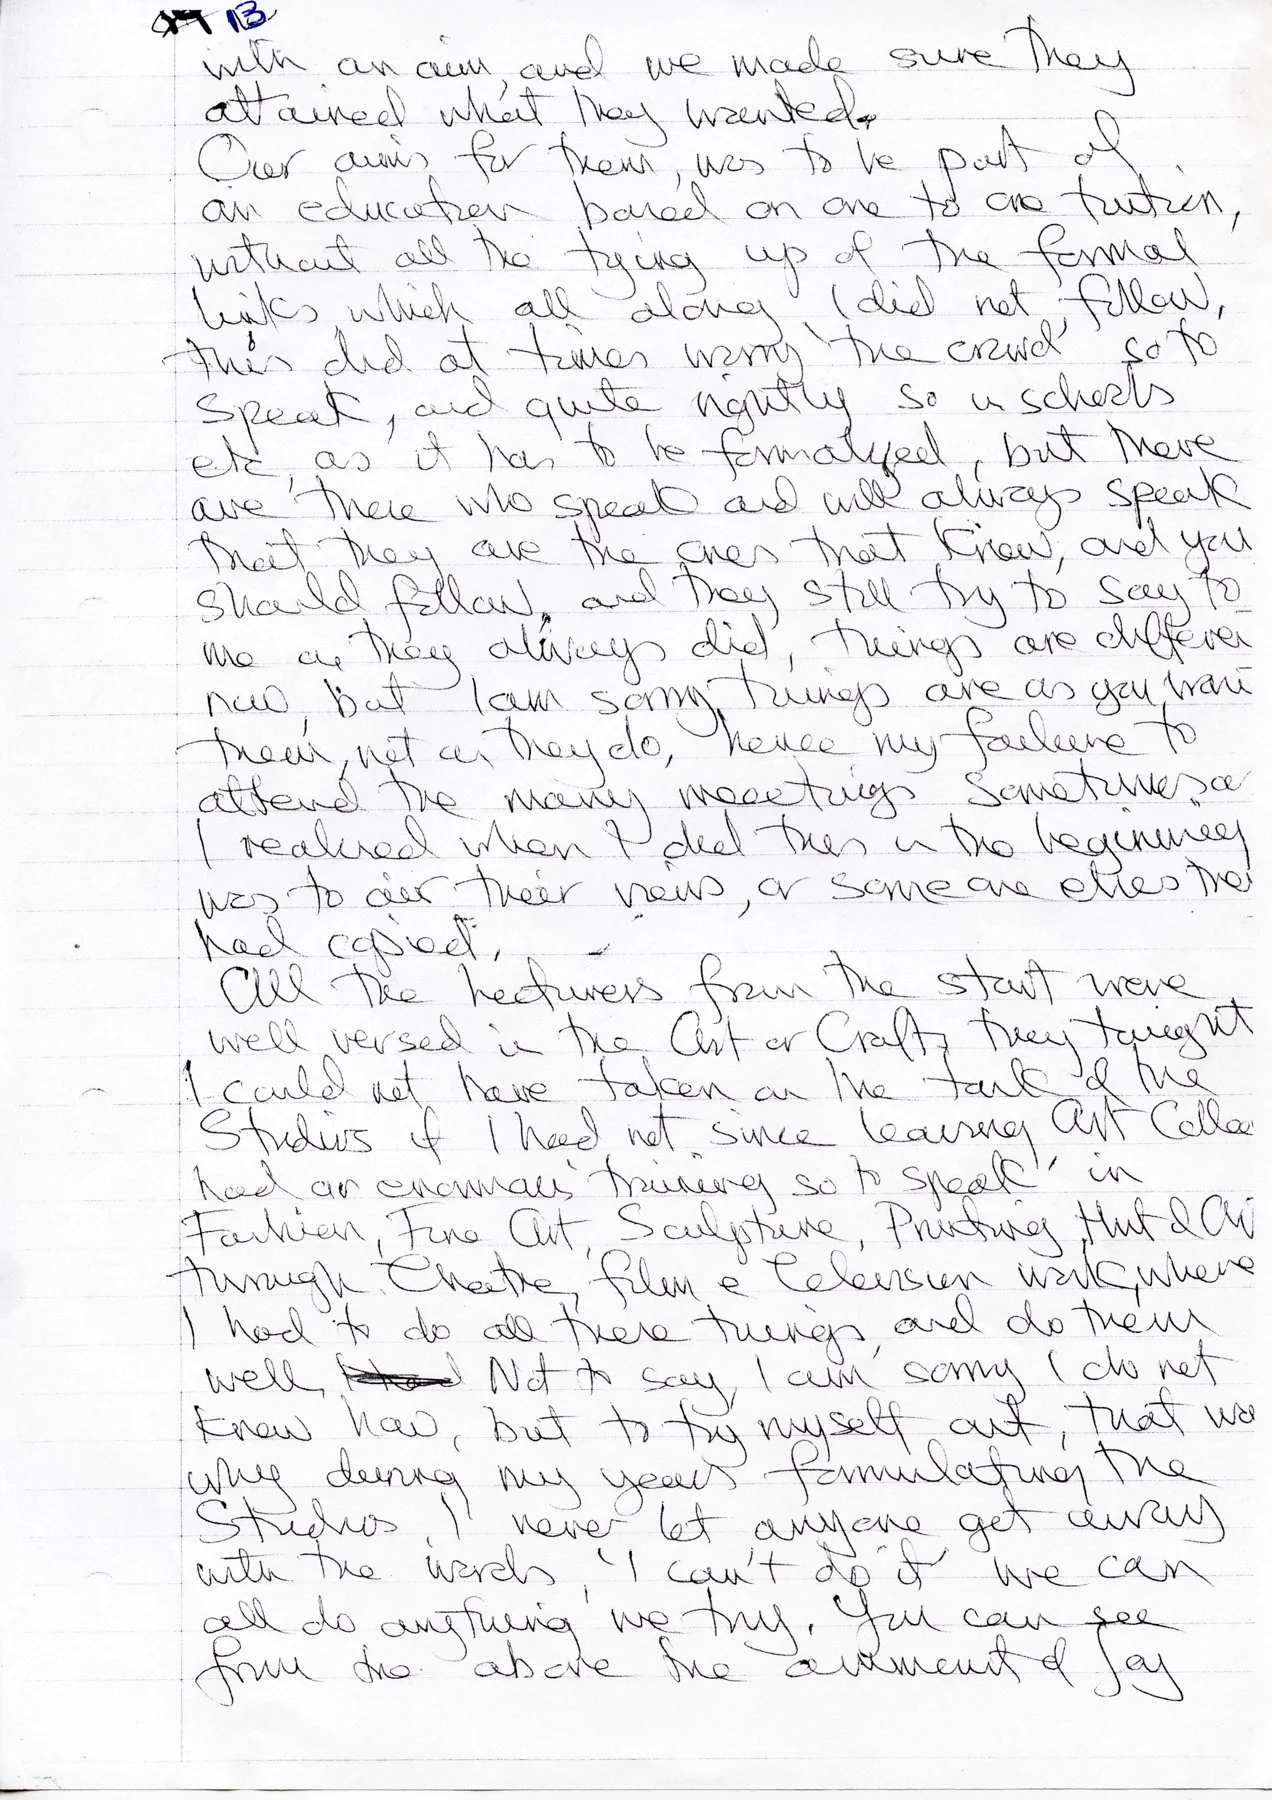 13
with an aim, and we made sure they
attained what they wanted.
Our aims for them, was to be part of
an education based on one to one tuition,
without all the tying up of the formal
links which all along I did not follow,
this did at times worry 'the crowd' so to
speak, and quite rightly so in schools
etc, as it has to be formalysed, but there
are those who speak and will always speak
that they are the ones that know, and you
should follow, and they still try to say to
me as they always did, things are differen
now, but I am sorry, things are as you want
them, not as they do, hence my failure to
attend the many meeetings sometimes, as
I realised when I did this in the beginning
was to air their views, or someone elses they
had copied.
All the Lecturers from the start were
well versed in the Art or Crafts they taught
I could not have taken on the task of the
Studios if I had not since leaving Art Colle
had an enormous 'training so to speak' in
Fashion, Fine Art, Sculpture, Printing,
through Theatre, film & Television work, where
I had to do all these things, and do them
well, Not to say, I am sorry I do not
know how, but to try myself out, that was
why during my years formulating the
Studios, I never let anyone get away
with the words, 'I can't do it' we can
all do anything we try. You can see
from the above the ammount of joy